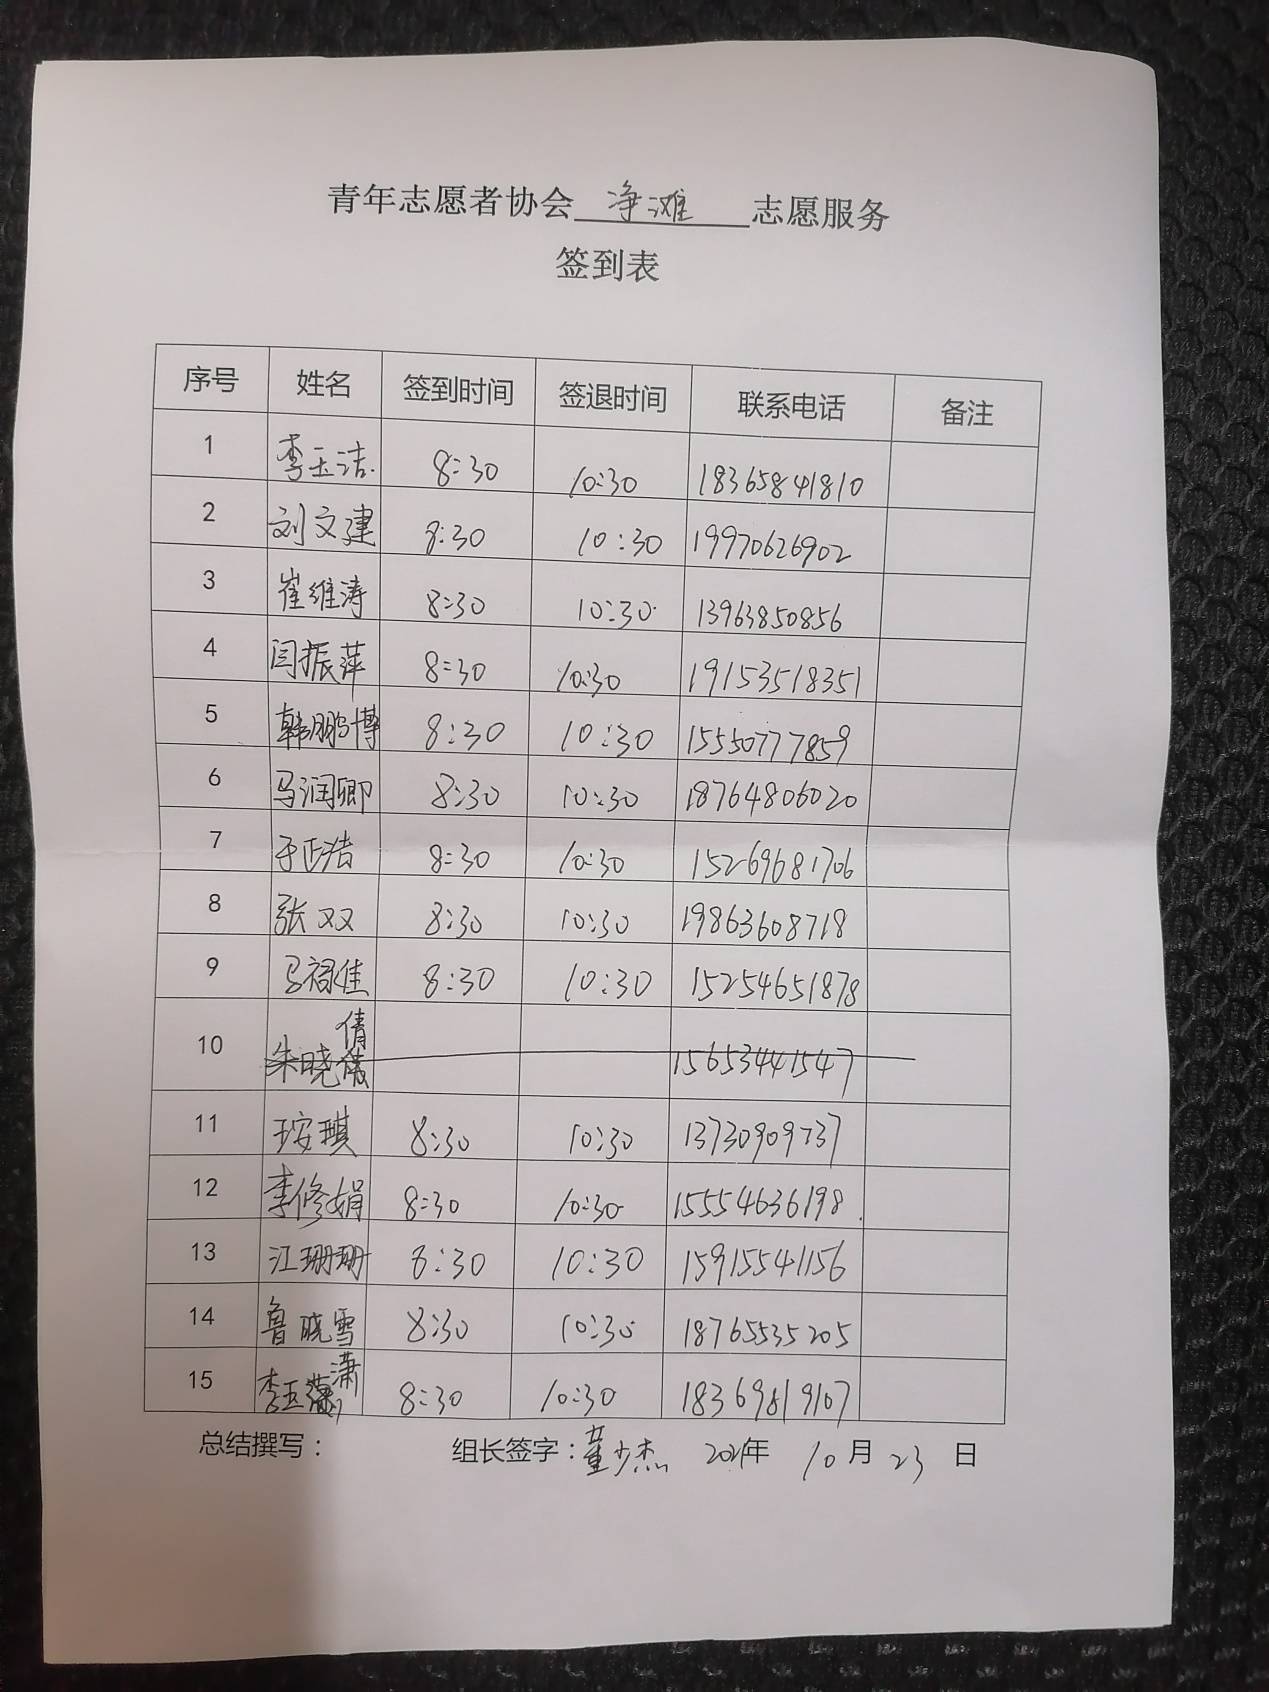 青年志愿者协会 净滩 志愿服务
签到表
序号 姓名 签到时间 签退时间 联系电话 备注
1 李玉洁 8:30 10:30 18365841810
2 刘文建 8:30 10:30 19970626902
3 崔维涛 8:30 10:30 13963850856
4 闫振萍 8:30 10:30 19153518351
5 韩鹏博 8:30 10:30 15550777859
6 马润卿 8:30 10:30 18764806020
7 于正浩 8:30 10:30 15269681706
8 张双 8:30 10:30 19863608718
9 马禄佳 8:30 10:30 15254651878
10 朱晓倩 15653441547
11 王安琪 8:30 10:30 13730909737
12 李修娟 8:30 10:30 15554636198
13 江珊珊 8:30 10:30 15915541156
14 鲁晓雪 8:30 10:30 18765535205
15 李玉潇 8:30 10:30 18369819107
总结撰写： 组长签字：董少杰 2021年 10月 23 日